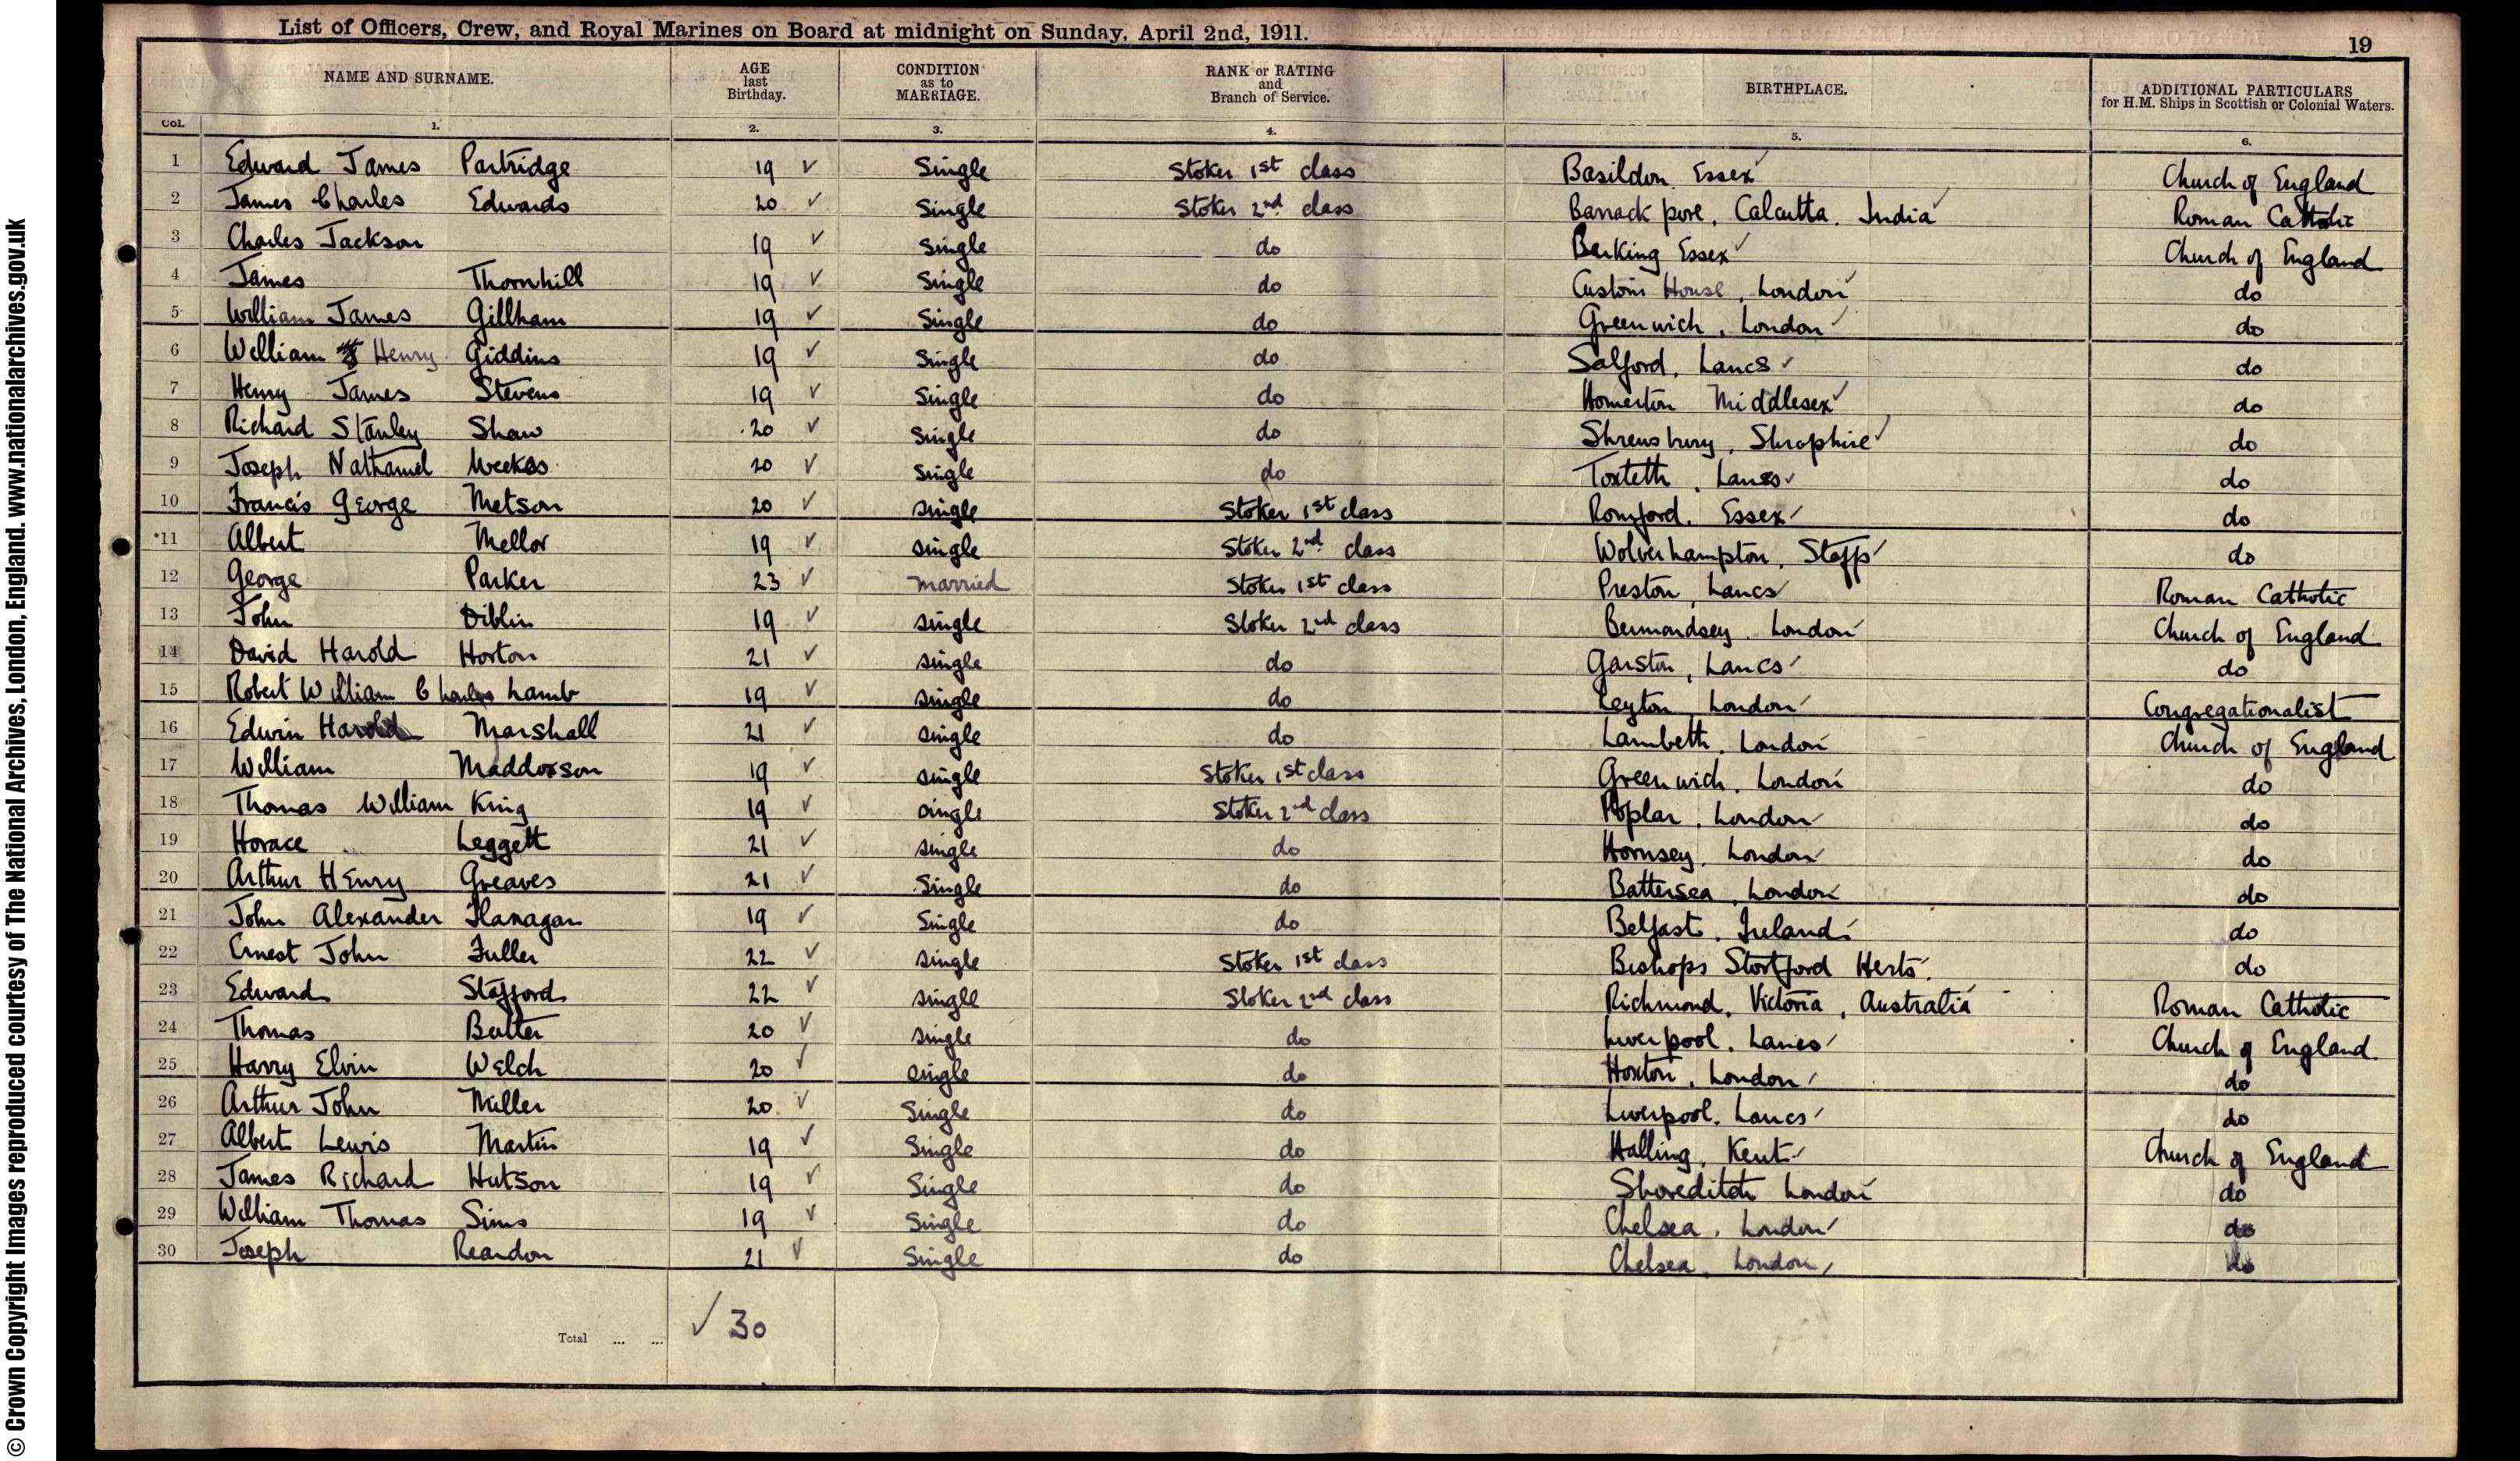 List of Officers, Crew, and Royal Marines on Board at midnight on Sunday, April 2nd, 1911.
19
NAME AND SURNAME. AGE last Birthday. CONDITION as to MARRIAGE. RANK or RATING and Branch of Service. BIRTHPLACE. ADDITIONAL PARTICULARS for H.M. Ships in Scottish or Colonial Waters.
Col. 1. 2. 3. 4. 5. 6.
1 Edward James Partridge 19 ✓ Single Stoker 1st class Basildon Essex ✓ Church of England
2 James Charles Edwards 20 ✓ Single Stoker 2nd class Barrackpore, Calcutta. India ✓ Roman Catholic
3 Charles Jackson 19 ✓ Single do Barking Essex ✓ Church of England
4 James Thornhill 19 ✓ Single do Custom House, London ✓ do
5 William James Gillham 19 ✓ Single do Greenwich, London ✓ do
6 William Henry Giddins 19 ✓ Single do Salford, Lancs ✓ do
7 Henry James Stevens 19 ✓ Single do Homerton Middlesex ✓ do
8 Richard Stanley Shaw 20 ✓ Single do Shrewsbury, Shrophire ✓ do
9 Joseph Nathaniel Weekes 20 ✓ Single do Toxteth, Lancs ✓ do
10 Francis George Metson 20 ✓ Single Stoker 1st class Romford. Essex ✓ do
11 Albert Mellor 19 ✓ Single Stoker 2nd class Wolverhampton, Staffs ✓ do
12 George Parker 23 ✓ married Stoker 1st class Preston, Lancs ✓ Roman Catholic
13 John Diblin 19 ✓ Single Stoker 2nd class Bermondsey. London ✓ Church of England
14 David Harold Horton 21 ✓ Single do Garston, Lancs ✓ do
15 Robert William Charles Lamb 19 ✓ Single do Leyton, London ✓ Congregationalist
16 Edwin Harold Marshall 21 ✓ Single do Lambeth, London ✓ Church of England
17 William Maddoxson 19 ✓ Single Stoker 1st class Greenwich. London ✓ do
18 Thomas William King 19 ✓ Single Stoker 2nd class Poplar, London ✓ do
19 Horace Leggett 21 ✓ Single do Hornsey, London ✓ do
20 Arthur Henry Greaves 21 ✓ Single do Battersea, London ✓ do
21 John Alexander Flanagan 19 ✓ Single do Belfast, Ireland ✓ do
22 Ernest John Fuller 22 ✓ Single Stoker 1st class Bishops Stortford Herts ✓ do
23 Edward Stafford 22 ✓ Single Stoker 2nd class Richmond, Victoria, Australia Roman Catholic
24 Thomas 20 ✓ Single do Liverpool, Lancs ✓ Church of England
25 Harry Elvin Welch 20 ✓ Single do Hoxton, London ✓ do
26 Arthur John Miller 20 ✓ Single do Liverpool. Lancs ✓ do
27 Albert Lewis Martin 19 ✓ Single do Halling, Kent ✓ Church of England
28 James Richard Hutson 19 ✓ Single do Shoreditch London ✓ do
29 William Thomas Sims 19 ✓ Single do Chelsea, London ✓ do
30 Joseph Reardon 21 ✓ Single do Chelsea, London ✓ do
Total ... ... ✓ 30
© Crown Copyright Images reproduced courtesy of The National Archives, London, England. www.nationalarchives.gov.uk